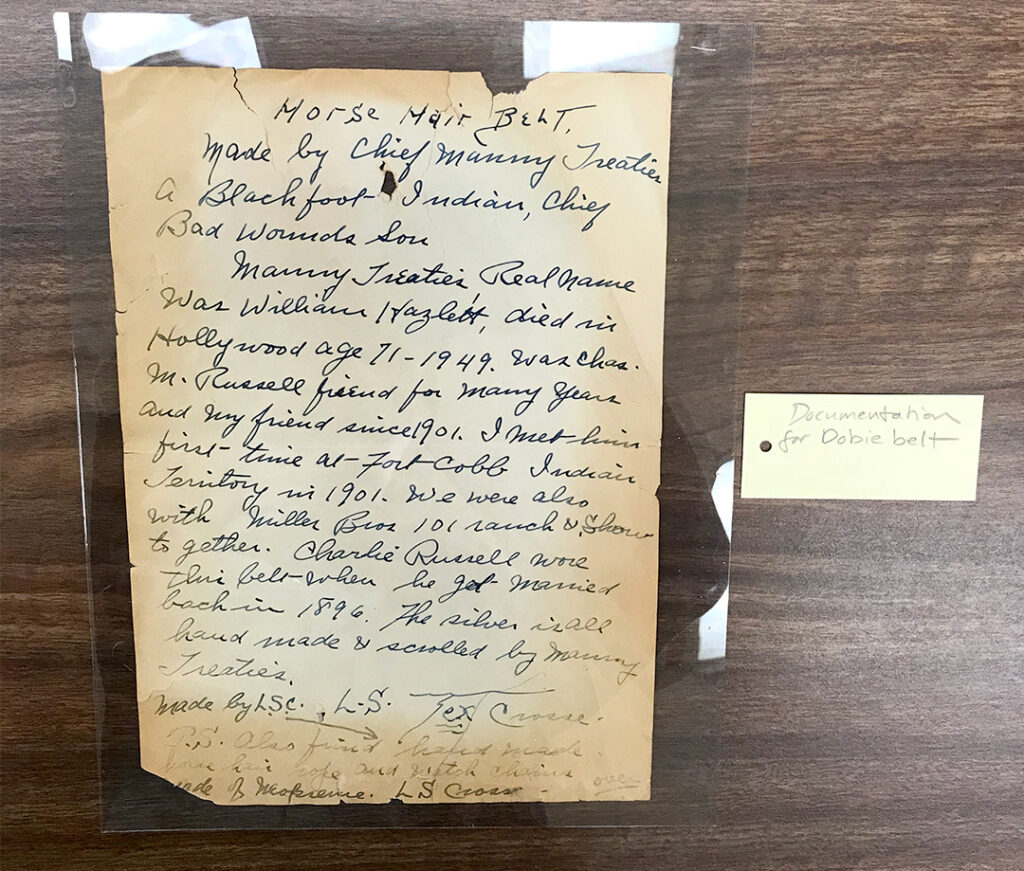 Horse Hair Belt.
Made by Chief Manny Treaties
A Blackfoot Indian, Chief
Bad Wounds Son
Manny Treaties Real Name
Was William Hazlett, died in
Hollywood age 71-1949. Was Chas.
M. Russell friend for Many Years
and My friend since 1901. I Met him
first time at Fort Cobb Indian
Territory in 1901. We were also
with Miller Bros 101 ranch & Show
to gether. Charlie Russell wore
this belt when he got Married
back in 1896. The silver is all
hand made & scrolled by Manny
Treaties.
Made by L.S.C. L.S. Tex Crosse.
P.S. Also find hand made
hair rope and watch chains
of L.S. Crosse
over
Documentation
for Dobie belt